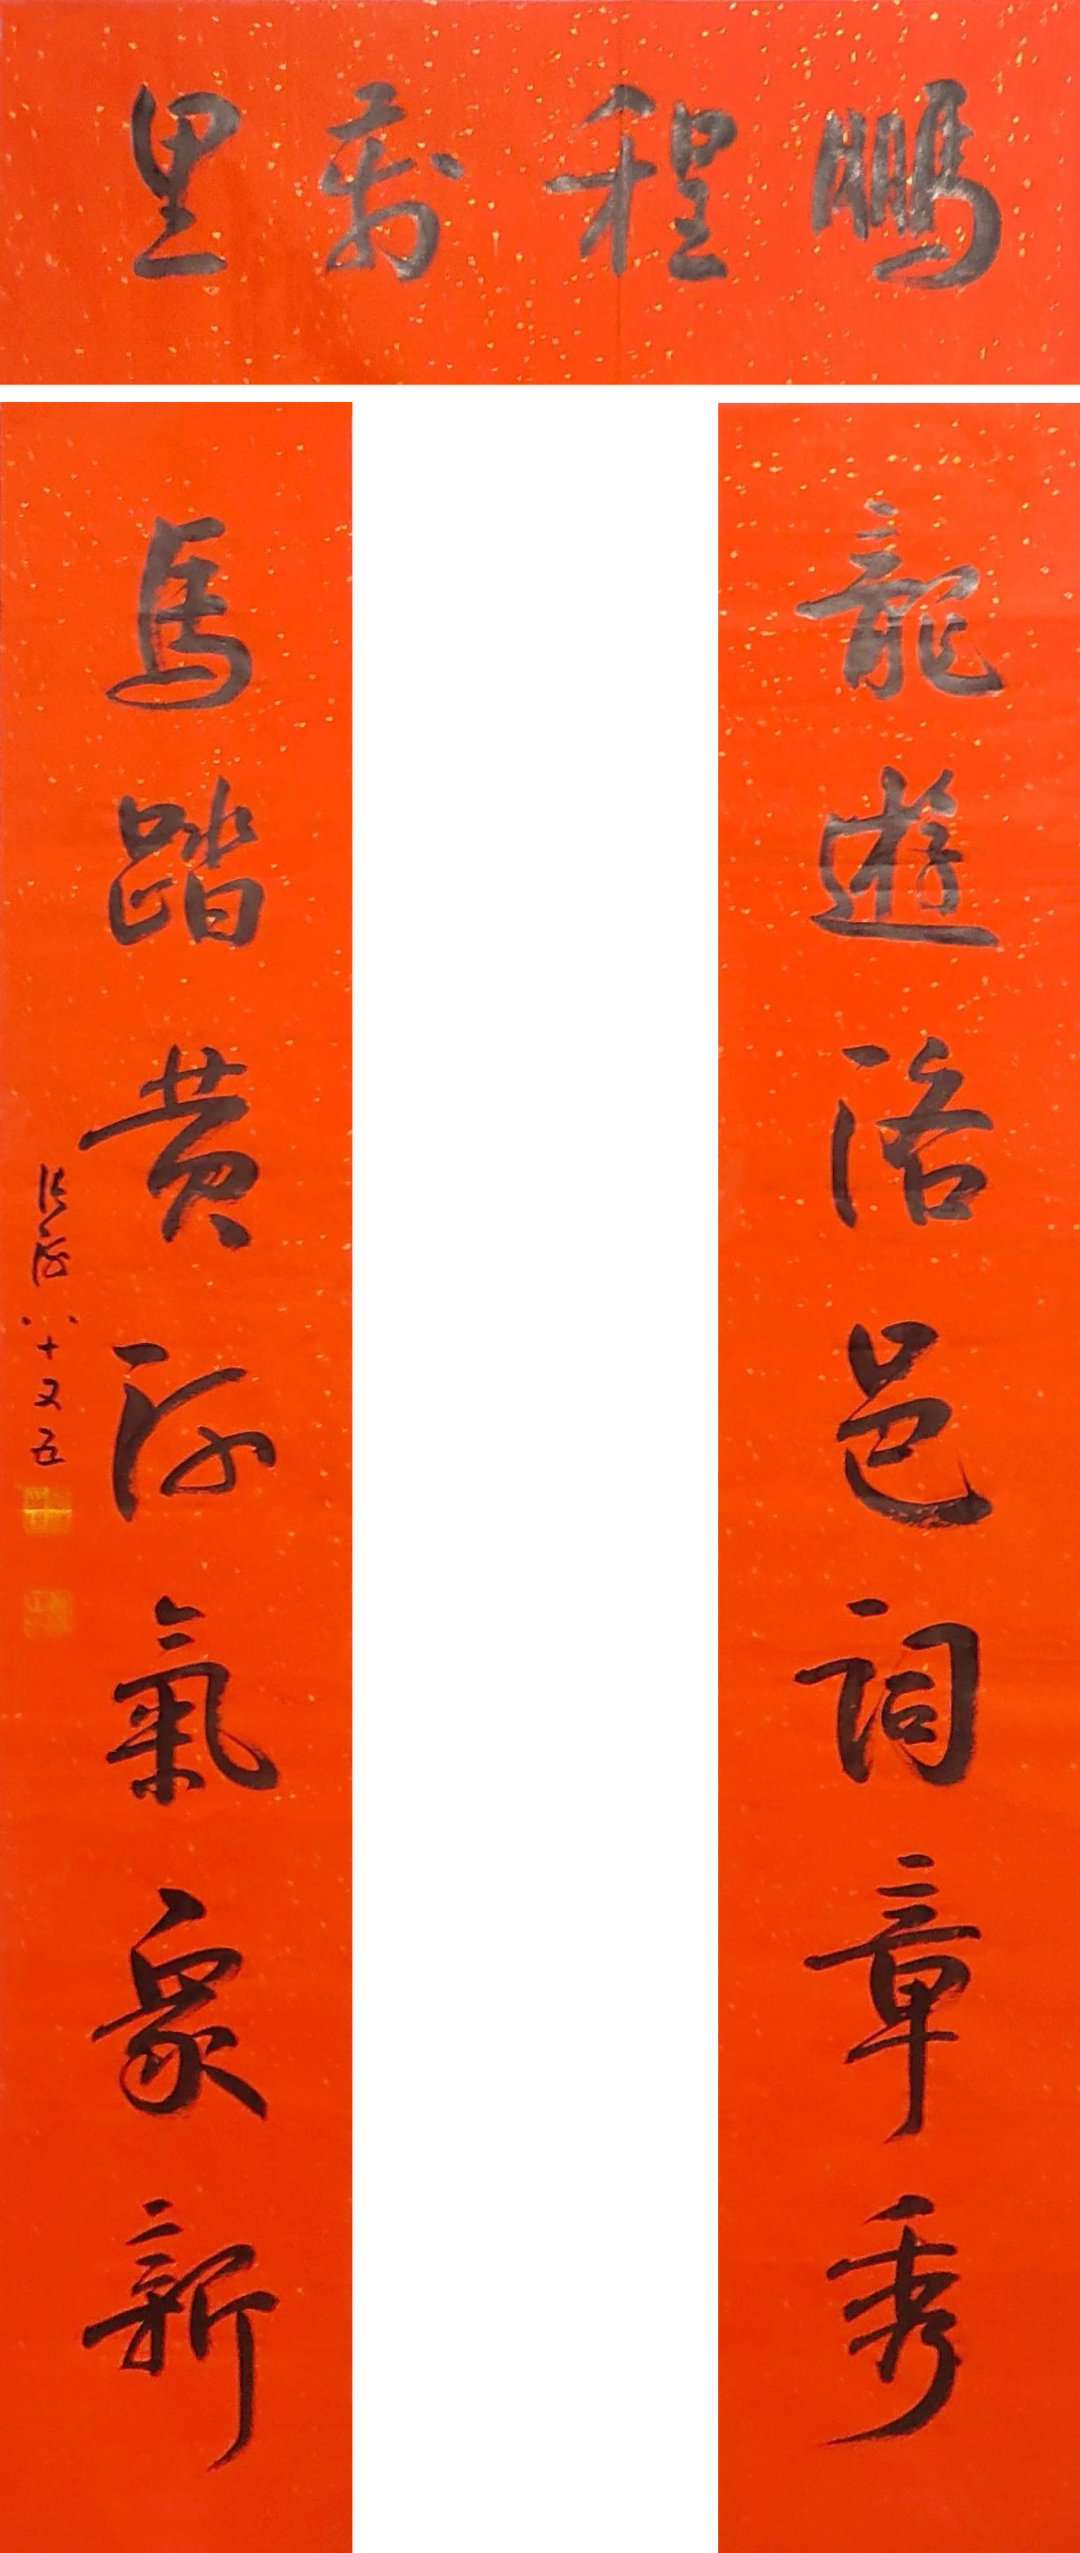 鵬程萬里
龍遊洛邑詞章秀
馬踏黄河氣象新
八十又五